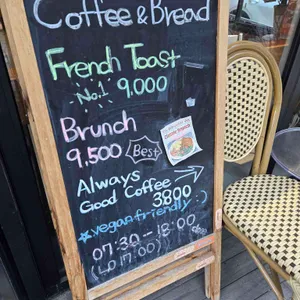 Coffee & Bread
French Toast
No.1 9.000
Brunch
9.500 Best
Always
Good Coffee
3800
vegan friendly :)
07:30 - 18:00
(LO 17:00)